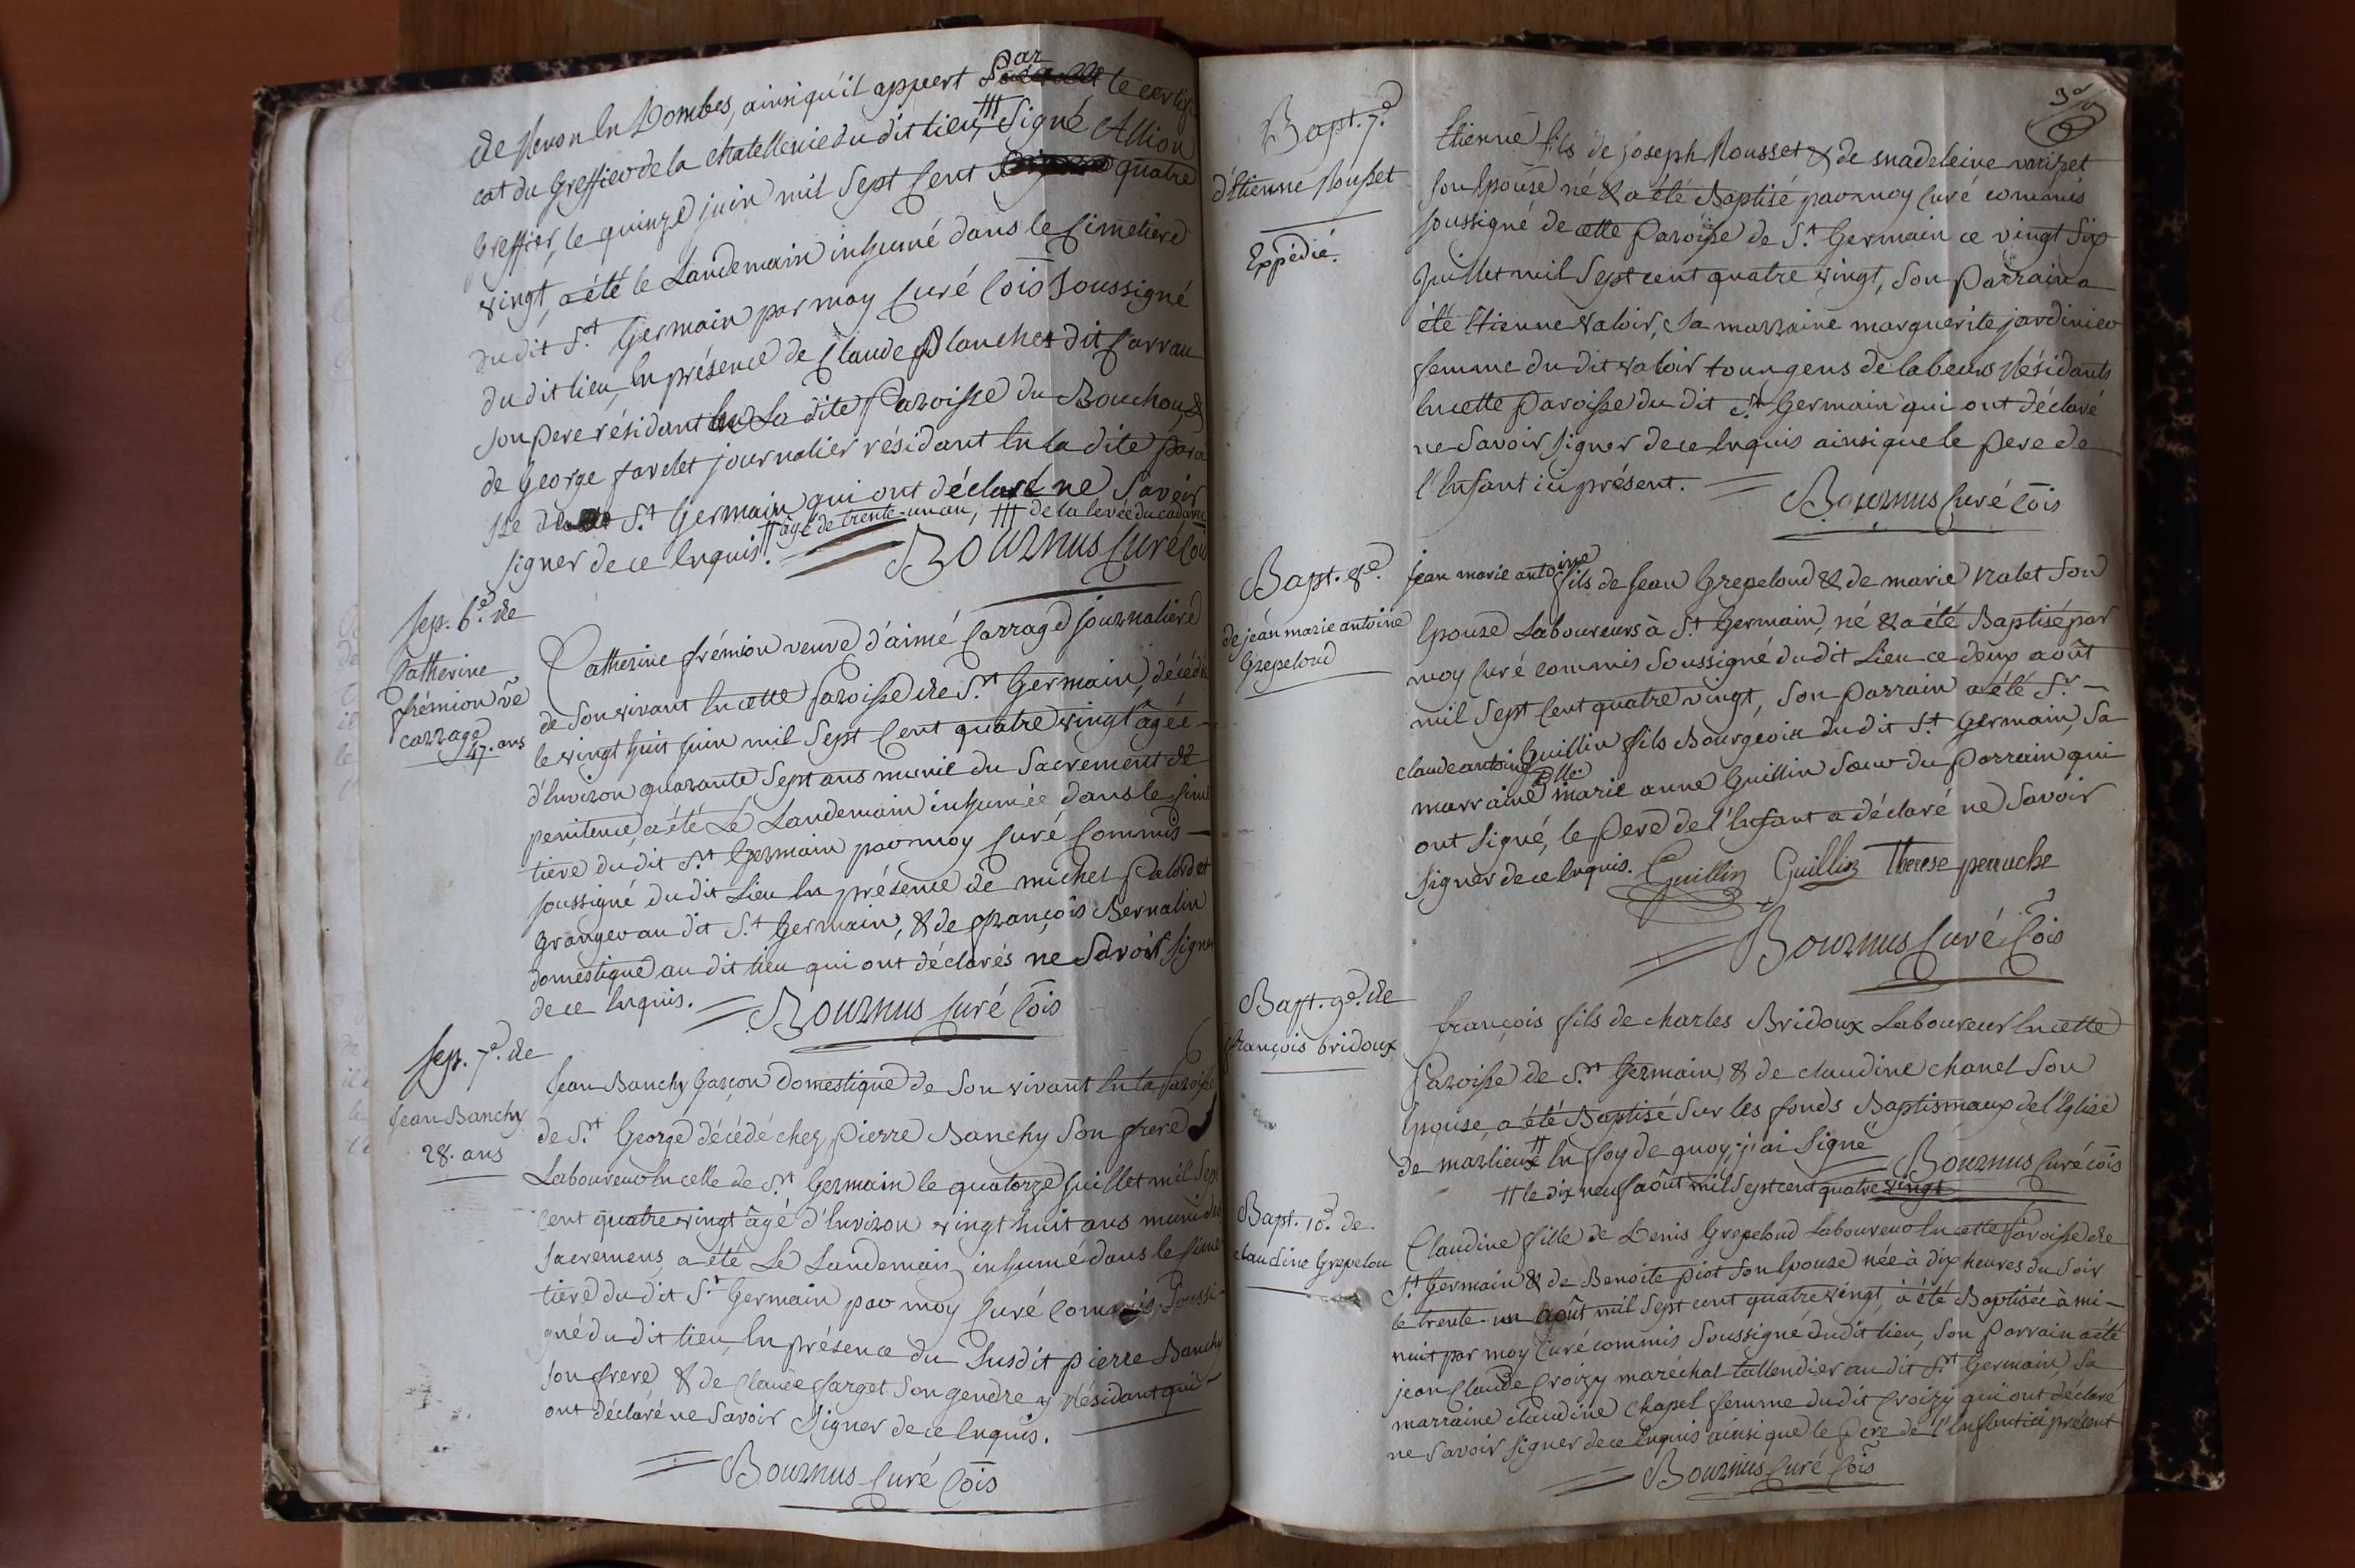 de Renon En Dombes, ainsi qu'il appert Par le certifi
cat du Greffier de la chatellenie du dit lieu, ttt Signé Allion
Greffier, le quinze juin mil Sept Cent quatre
vingt, a été le Landemain inhumé dans le Cimetiere
du dit St. Germain par moy Curé Cois Soussigné
du dit lieu, En présence de Claude Blanchet dit Carrau
son pere résidant En La dite Paroisse du Bouchou, &
de George favelet journalier résidant En la dite paroi
sse de St. Germain qui ont déclaré ne Savoir
tt âgé de trente-un an, ttt de la levée du cadavre
signer de ce Enquis. Bournus Curé Cois
Sep. 6e. de
Catherine
frémion ve
carrage
47. ans
Catherine frémion veuve d'aimé Carrage journaliere
de Son vivant En cette Paroisse de St. Germain, décédée
le vingt huit Juin mil Sept Cent quatre vingt âgée
d'Environ quarante Sept ans munie du Sacrement de
penitence, a été Le Landemain inhumée dans le Cime
tiere du dit St. Germain par moy Curé Commis
soussigné du dit Lieu En présence de michel Palordet
Granger au dit St. Germain, & de François Bernalin
domestique au dit lieu qui ont déclarés ne Savoir Signer
de ce Enquis. Bournus Curé Cois
Sep. 7e. de
Jean Banchy
28. ans
Jean Banchy Garçon domestique de Son vivant En la Paroisse
de St. George décédé chez Pierre Banchy Son frere
Laboureur En celle de St. Germain le quatorze Juillet mil Sept
Cent quatre vingt âgé d'Environ vingt huit ans muni des
Sacremens, a été Le Landemain inhumé dans le Cime
tiere du dit St. Germain par moy Curé Commis Soussi-
gné du dit lieu, En présence du Susdit pierre Banchy
Son frere & de Claude Farget Son gendre y Résidant qui
ont déclaré ne Savoir Signer de ce Enquis.
Bournus Curé Cois
Bapt. 7e.
d'Etienne Rousset
Expédié.
Etienne fils de joseph Rousset & de madeleine varizet
Son Epouse né & a été Baptisé par moy Curé commis
soussigné de cette Paroisse de St. Germain ce vingt Six
Juillet mil Sept cent quatre vingt, Son Parrain a
été Etienne valoir, Sa marraine marguerite jardinier
femme du dit valoir tous gens de labeurs Résidants
En cette Paroisse du dit St. Germain qui ont déclaré
ne Savoir signer de ce Enquis ainsi que le Pere de
l'Enfant ici présent. Bournus Curé Cois
Bapt. 8e.
de jean marie antoine
Grepeloud
jean marie antoine fils de Jean Grepeloud & de marie Ralet Son
Epouse Laboureurs à St. Germain, né & a été Baptisé par
moy Curé commis Soussigné du dit Lieu ce deux août
mil Sept Cent quatre vingt, Son Parrain a été Sr.
claude antoine Guillin fils Bourgeois du dit St. Germain, Sa
marraine Dlle. marie anne Guillin Sœur du Parrain qui
ont Signé, le Pere de l'Enfant a déclaré ne Savoir
Signer de ce Enquis. Guillin Guillin Therese perruche
Bournus Curé Cois
Bapt. 9e. de
François bridoux
François fils de charles Bridoux Laboureur En cette
Paroisse de St. Germain, & de claudine chanel Son
Epouse, a été Baptisé Sur les fonds Baptismaux de l'Eglise
de marlieux tt En foy de quoy j'ai Signé Bournus Curé cois
tt le dix neuf août mil Sept cent quatre vingt
Bapt. 10e. de
claudine Grepelou
Claudine fille de Denis Grepeloud Laboureur En cette Paroisse de
St. Germain & de Benoite piot Son Epouse née à dix heures du Soir
le trente-un août mil Sept cent quatre vingt, a été Baptisée à mi-
nuit par moy Curé commis Soussigné du dit lieu, Son Parrain a été
jean Claude Croizy maréchal tallendier au dit St. Germain, Sa
marraine claudine Chapel femme du dit Croizy qui ont déclaré
ne Savoir signer de ce Enquis ainsi que le Pere de l'Enfant ici présent
Bournus Curé Cois